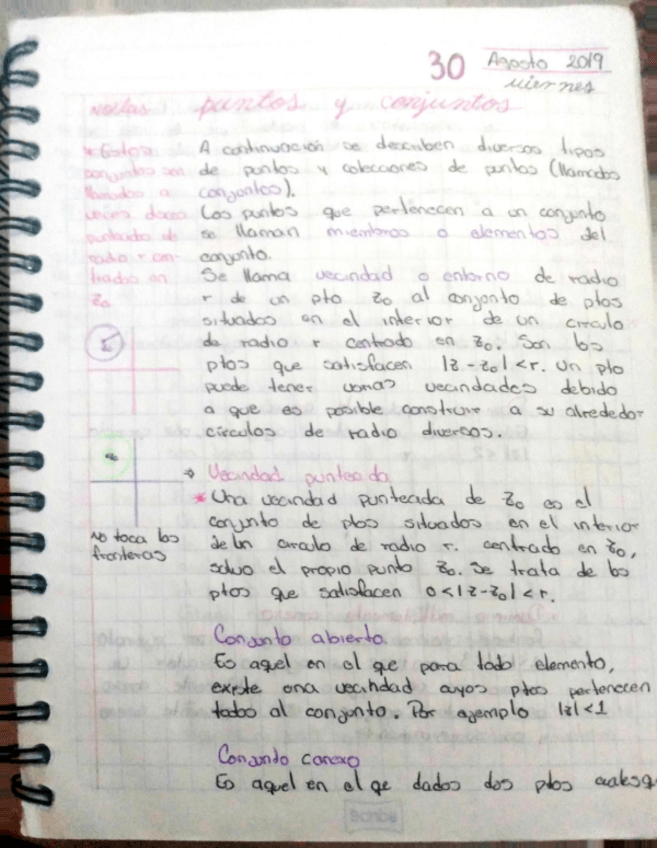 30 Agosto 2019
viernes
Notas: puntos y conjuntos
* Estos
conjuntos son
llamados a
veces discos
punteado de
radio r cen-
trados en
z₀
A continuación se describen diversos tipos
de puntos y colecciones de puntos (llamados
conjuntos).
Los puntos que pertenecen a un conjunto
se llaman miembros o elementos del
conjunto.
Se llama vecindad o entorno de radio
r de un pto z₀ al conjunto de ptos
situados en el interior de un circulo
de radio r centrado en z₀. Son los
ptos que satisfacen |z - z₀| < r. Un pto
puede tener varias vecindades debido
a que es posible construir a su alrededor
circulos de radio diversos.
No toca las
fronteras
→ Vecindad punteada
* Una vecindad punteada de z₀ es el
conjunto de ptos situados en el interior
de un circulo de radio r. centrado en z₀,
salvo el propio punto z₀. Se trata de los
ptos que satisfacen 0 < |z - z₀| < r.
Conjunto abierto
Es aquel en el que para todo elemento,
existe una vecindad cuyos ptos pertenecen
todos al conjunto. Por ejemplo |z| < 1
Conjunto conexo
Es aquel en el qe dados dos ptos cualesq
Scribe